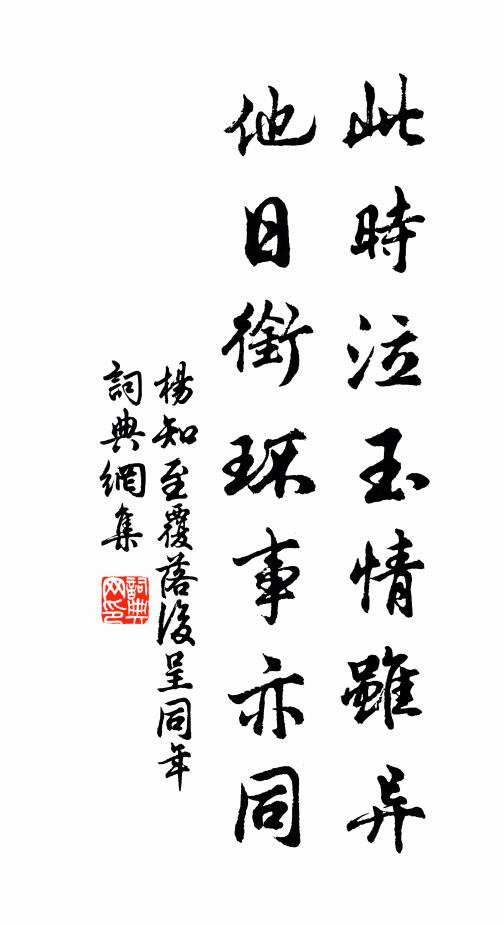 此時泣玉情雖异
他日銜环事亦同
楊知至覆落後呈同年
詞典網集
詞典
網印